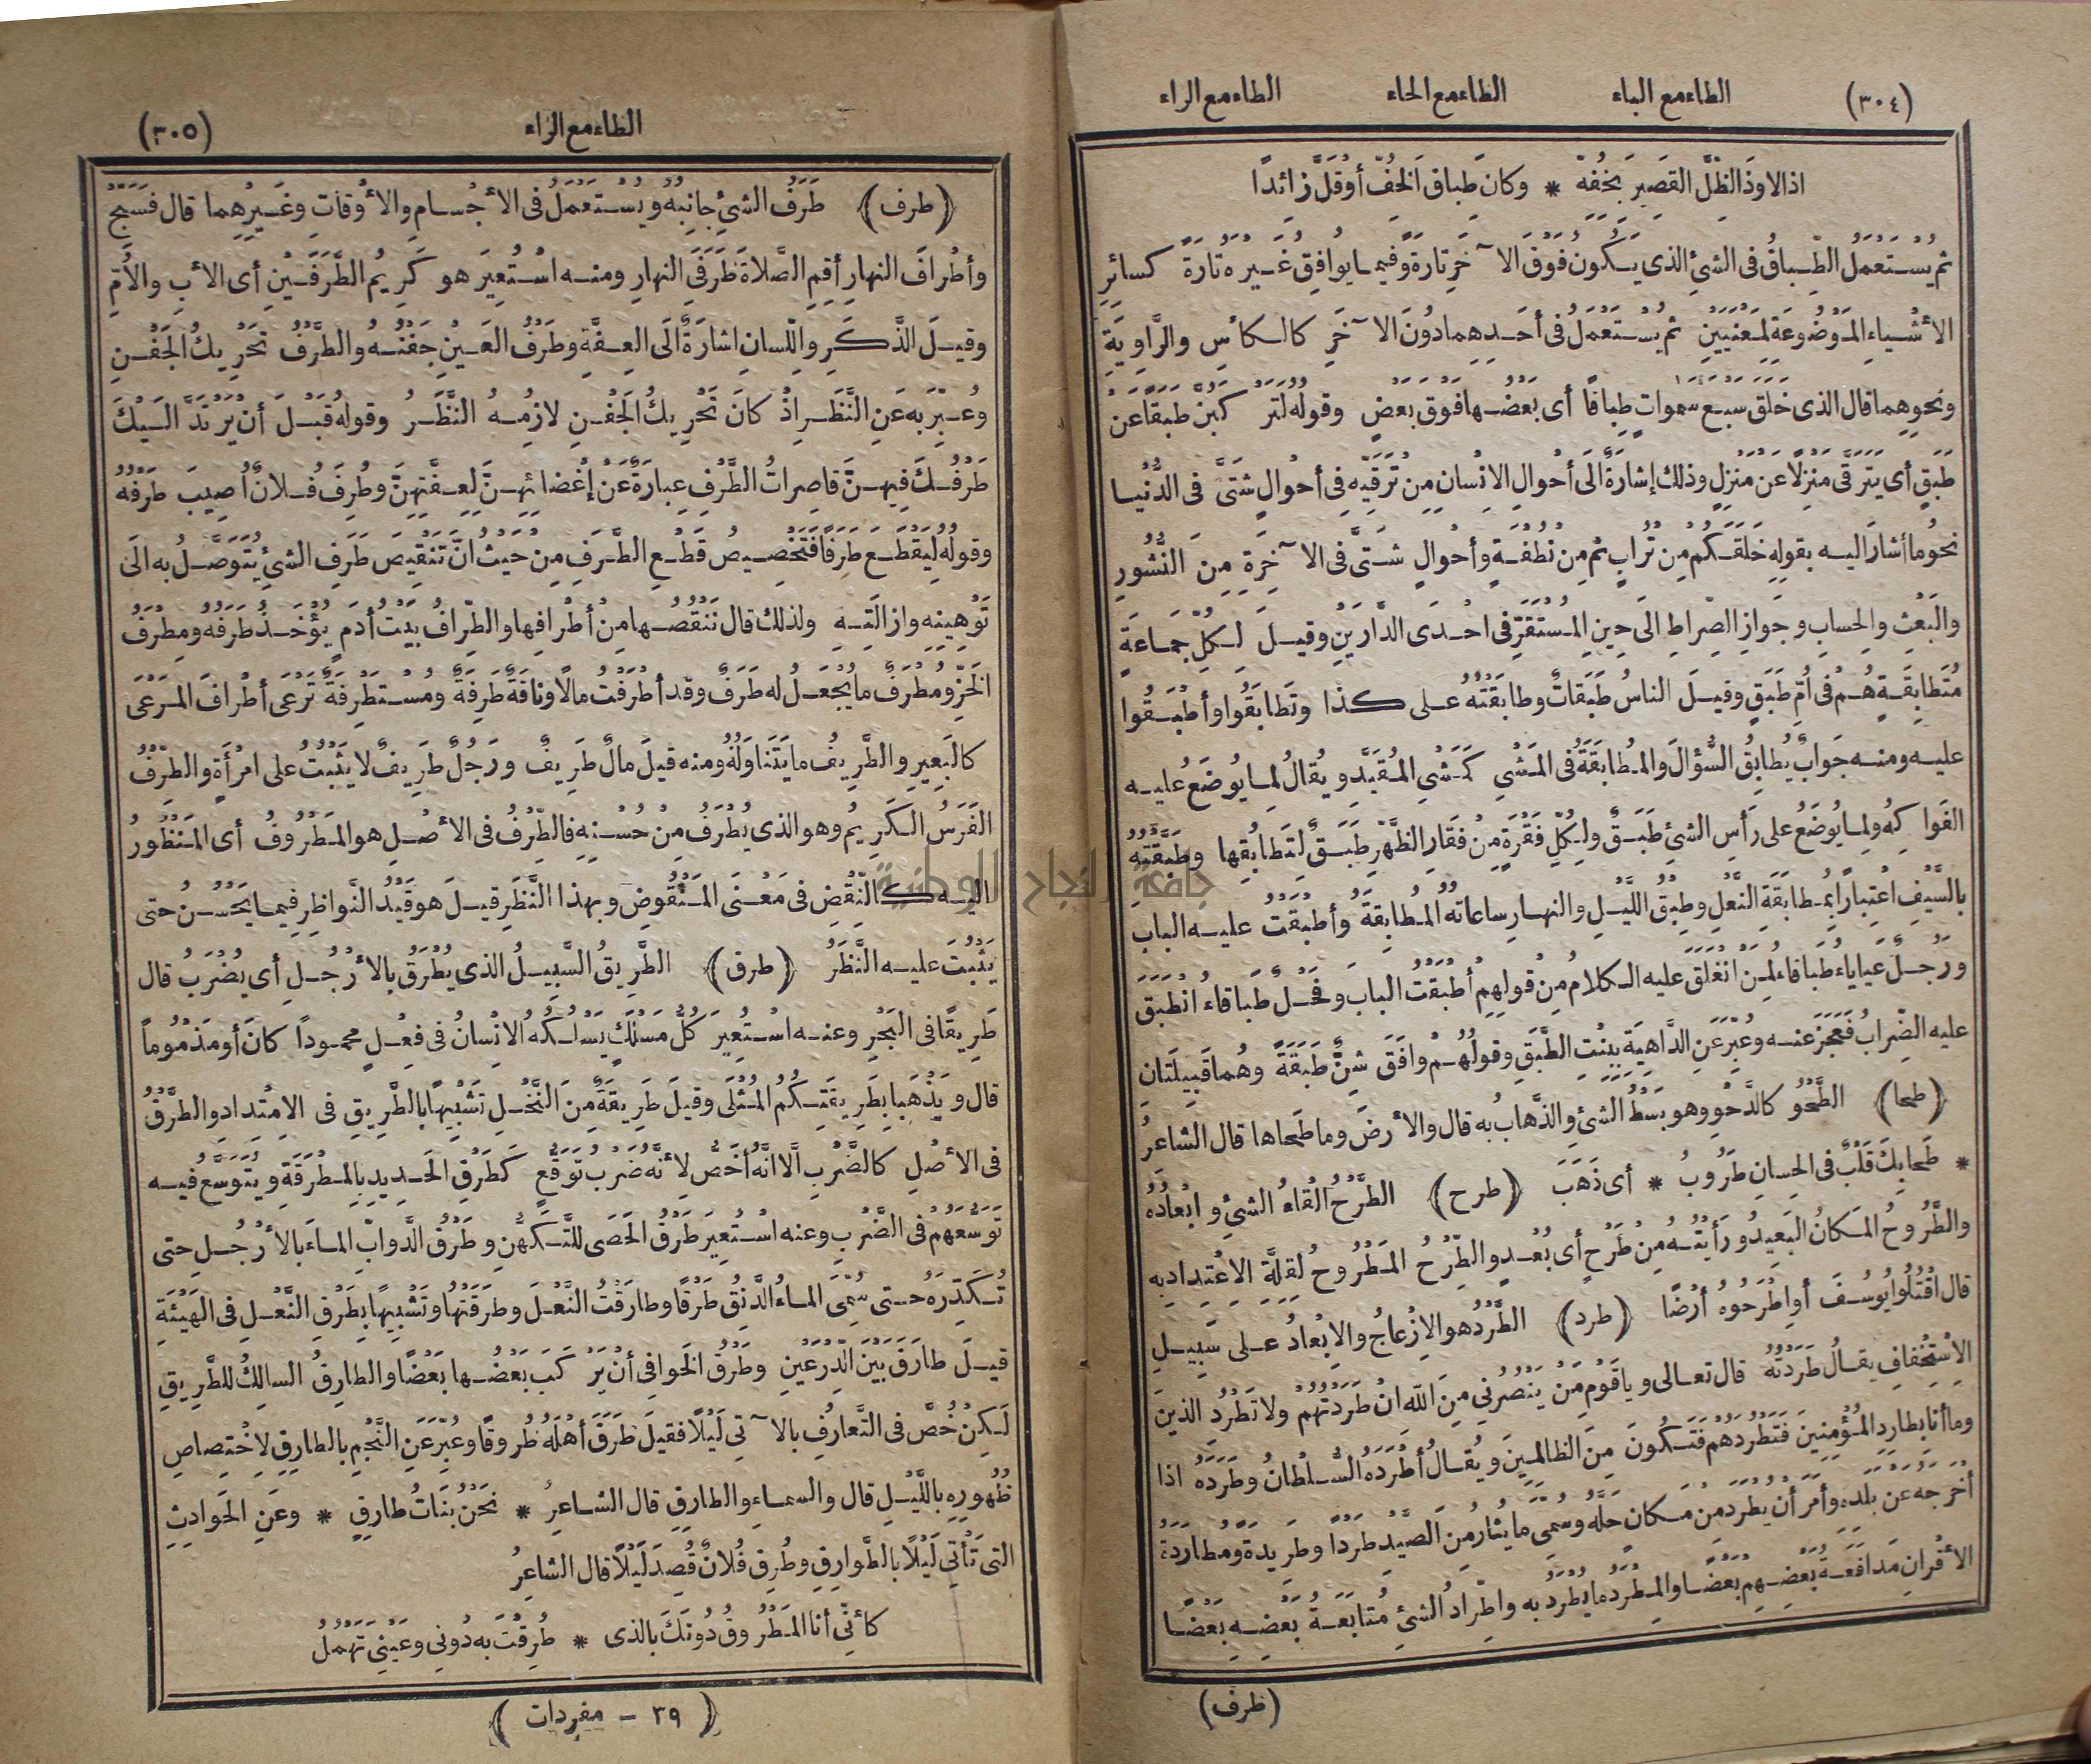 (٣٠٤) الطاء مع الباء الطاء مع الحاء الطاء مع الراء
اذا لاوذ الظل القصير بخفه * وكان طباق الخف أو قل زائدا
ثم يستعمل الطباق فى الشئ الذى يكون فوق الآخر تارة وفيما يوافق غيره تارة كسائر
الأشياء الموضوعة لمعنيين ثم يستعمل فى أحدهما دون الآخر كالكأس والراوية
ونحوهما قال الذى خلق سبع سموات طباقا أى بعضها فوق بعض وقوله لتركبن طبقا عن
طبق أى يترقى منزلا عن منزل وذلك إشارة الى أحوال الانسان من ترقيه فى أحوال شتى فى الدنيا
نحو ما أشار اليه بقوله خلقكم من تراب ثم من نطفة وأحوال شتى فى الآخرة من النشور
والبعث والحساب وجواز الصراط الى حين المستقر فى احدى الدارين وقيل لكل جماعة
متطابقة هم فى أم طبق وقيل الناس طبقات وطابقته على كذا وتطابقوا وأطبقوا
عليه ومنه جواب يطابق السؤال والمطابقة فى المشى كمشى المقيد ويقال لما يوضع عليه
الفواكه ولما يوضع على رأس الشئ طبق ولكل فقرة من فقار الظهر طبق لتطابقها وطبقته
بالسيف اعتبارا بمطابقة النعل وطبق الليل والنهار ساعاته المطابقة وأطبقت عليه الباب
ورجل عياياء طباقاء لمن انغلق عليه الكلام من قولهم أطبقت الباب وفحل طباقاء انطبق
عليه الضراب فعجز عنه وعبر عن الداهية ببنت الطبق وقولهم وافق شن طبقة وهما قبيلتان
(طحا) الطحو كالدحو وهو بسط الشئ والذهاب به قال والأرض وما طحاها قال الشاعر
* طحا بك قلب فى الحسان طروب * أى ذهب (طرح) الطرح القاء الشئ وابعاده
والطروح المكان البعيد ورأيته من طرح أى بعد والطرح المطروح لقلة الاعتداد به
قال اقتلوا يوسف أو اطرحوه أرضا (طرد) الطرد هو الازعاج والابعاد على سبيل
الاستخفاف يقال طردته قال تعالى ويا قوم من ينصرنى من الله ان طردتهم ولا تطرد الذين
وما أنا بطارد المؤمنين فتطردهم فتكون من الظالمين ويقال أطرده السلطان وطرده اذا
أخرجه عن بلده وأمر أن يطرد من مكان حله وسمى ما يثار من الصيد طردا وطريدة ومطاردة
الأقران مدافعة بعضهم بعضا والمطرد ما يطرد به واطراد الشئ متابعة بعضه بعضا
(طرف)
الطاء مع الراء (٣٠٥)
(طرف) طرف الشئ جانبه ويستعمل فى الأجسام والأوقات وغيرهما قال فسبح
وأطراف النهار أقم الصلاة طرفى النهار ومنه استعير هو كريم الطرفين أى الأب والأم
وقيل الذكر واللسان اشارة الى العفة وطرف العين جفنه والطرف تحريك الجفن
وعبر به عن النظر اذ كان تحريك الجفن لازمه النظر وقوله قبل أن يرتد اليك
طرفك فيهن قاصرات الطرف عبارة عن إغضائهن لعفتهن وطرف فلان أصيب طرفه
وقوله ليقطع طرفا فتخصيص قطع الطرف من حيث ان تنقيص طرف الشئ يتوصل به الى
توهينه وازالته ولذلك قال ننقصها من أطرافها والطراف بيت أدم يؤخذ طرفه ومطرف
الخز ومطرف ما يجعل له طرف وقد أطرفت مالا وناقة طرفة ومستطرفة ترعى أطراف المرعى
كالبعير والطريف ما يتناوله ومنه قيل مال طريف ورجل طريف لا يثبت على امرأة والطرف
الفرس الكريم وهو الذى يطرف من حسنه فالطرف فى الأصل هو المطروف أى المنظور
اليه كالنقض فى معنى المنقوض وبهذا النظر قيل هو قيد النواظر فيما يحسن حتى
يثبت عليه النظر (طرق) الطريق السبيل الذى يطرق بالأرجل أى يضرب قال
طريقا فى البحر وعنه استعير كل مسلك يسلكه الانسان فى فعل محمودا كان أو مذموما
قال ويذهبا بطريقتكم المثلى وقيل طريقة من النخل تشبيها بالطريق فى الامتداد والطرق
فى الأصل كالضرب الا انه أخص لأنه ضرب توقع كطرق الحديد بالمطرقة ويتوسع فيه
توسعهم فى الضرب وعنه استعير طرق الحصى للتكهن وطرق الدواب الماء بالأرجل حتى
تكدره حتى سمى الماء الدنق طرقا وطارقت النعل وطرقتها وتشبيها بطرق النعل فى الهيئة
قيل طارق بين الدرعين وطرق الخوافى أن يركب بعضها بعضا والطارق السالك للطريق
لكن خص فى التعارف بالآتى ليلا فقيل طرق أهله طروقا وعبر عن النجم بالطارق لاختصاص
ظهوره بالليل قال والسماء والطارق قال الشاعر * نحن بنات طارق * وعن الحوادث
التى تأتى ليلا بالطوارق وطرق فلان قصد ليلا قال الشاعر
كأنى أنا المطروق دونك بالذى * طرقت به دونى وعينى تهمل
(٣٩ - مفردات)
جامعة النجاح الوطنية